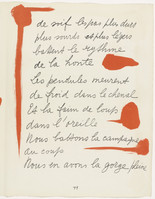 de nuit les pas plus durs
plus sourds et plus légers
battent le rythme
de la honte
Les pendules meurent
de froid dans le chenal
Et la faim de loup
dans l'oreille
Nous battons la campagne
au coup
Nous en avons la gorge pleine